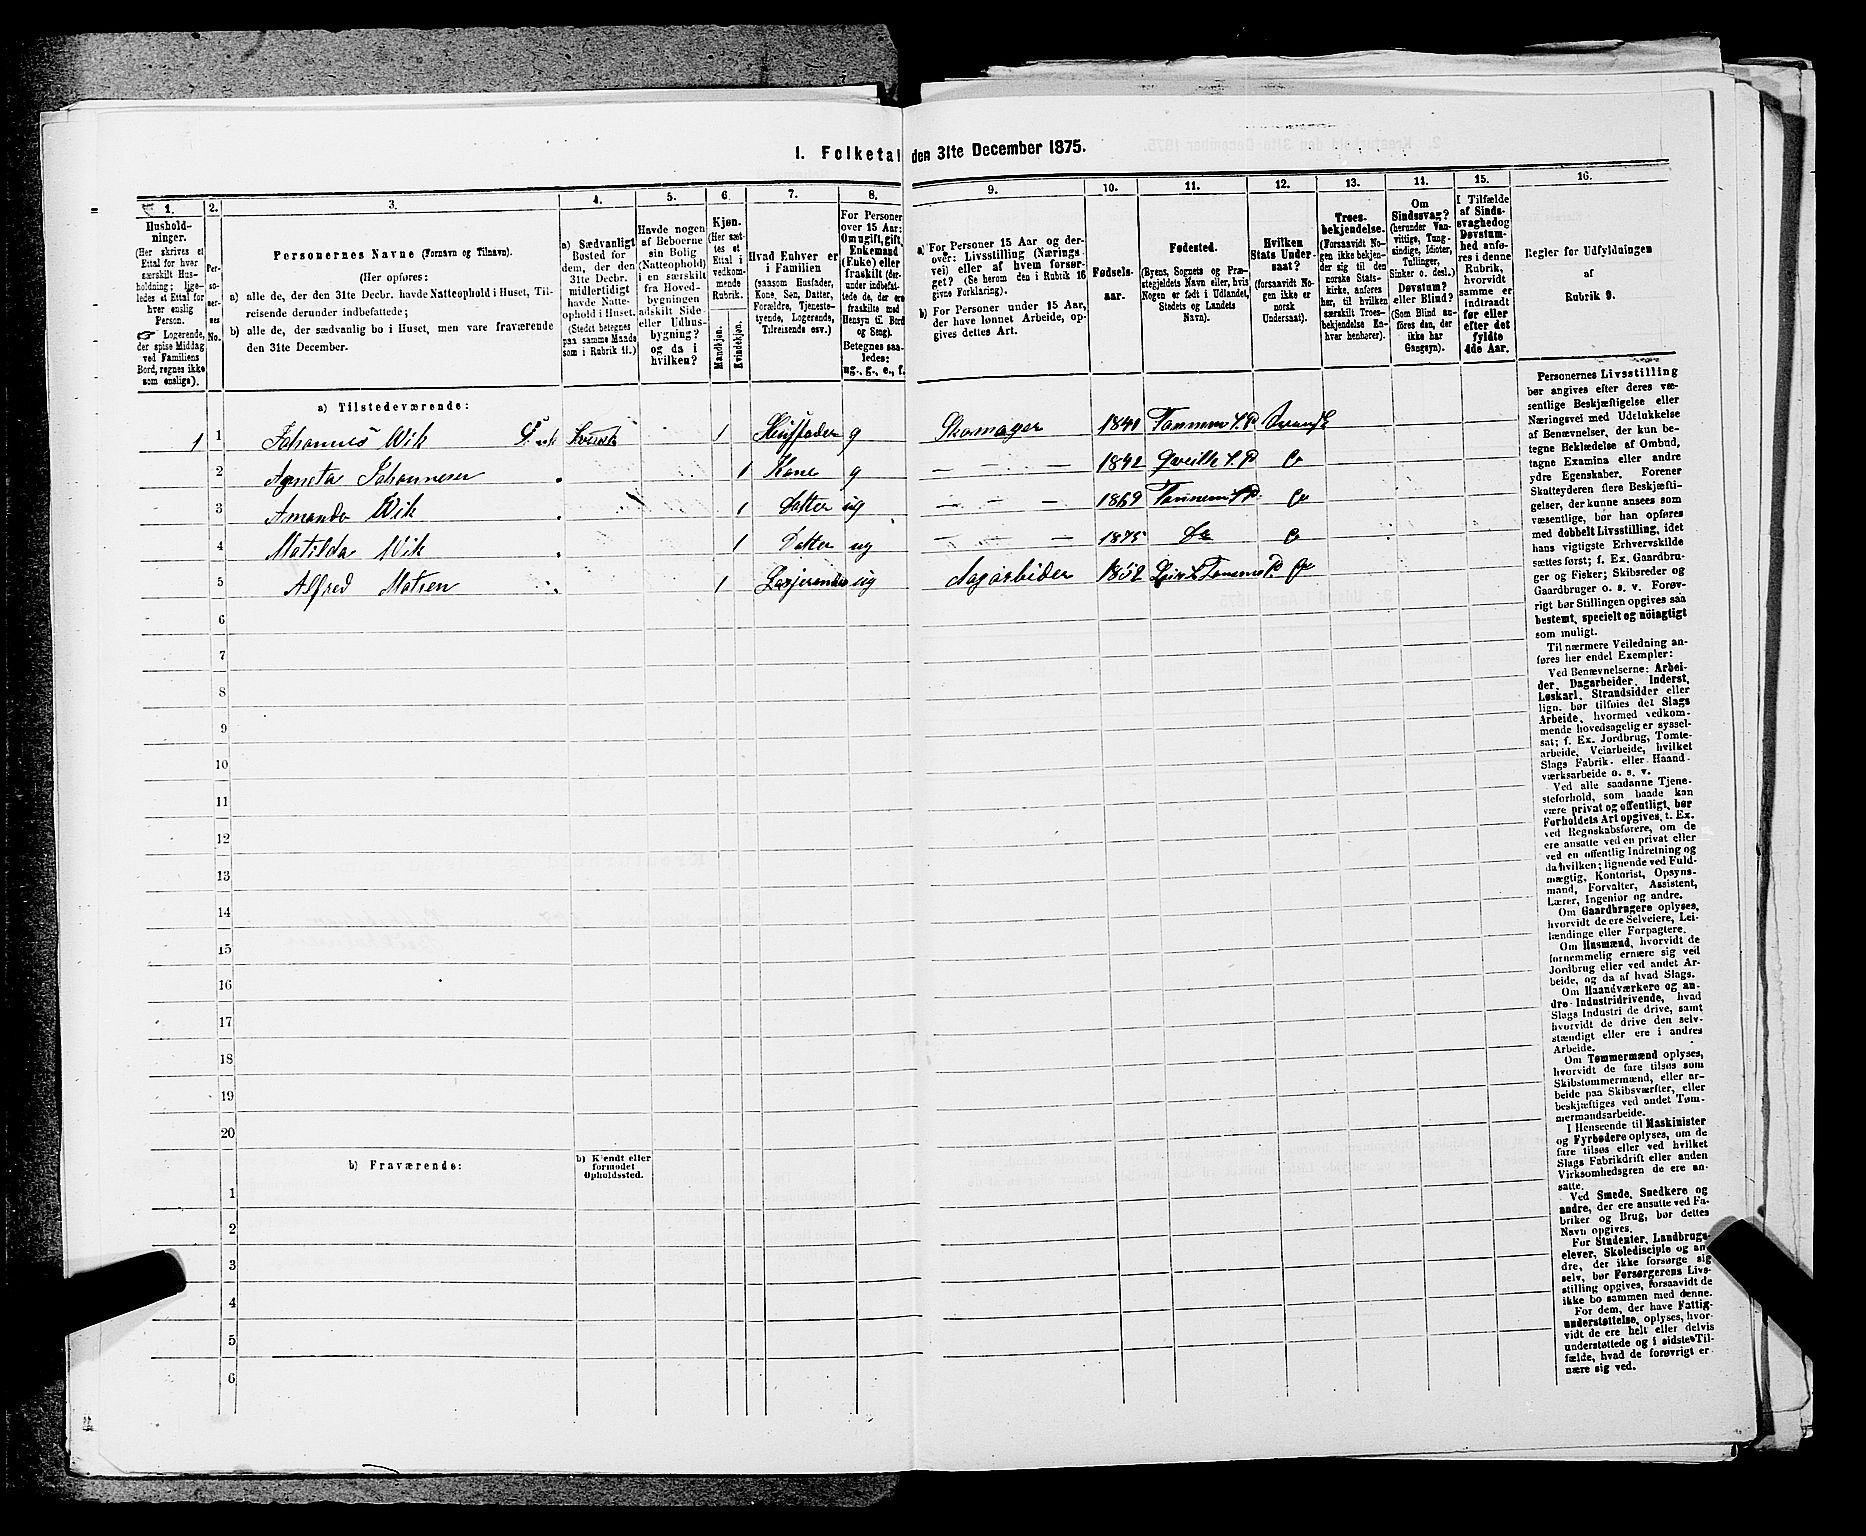 1. Folketal den 31te December 1875.
1.
2.
3.
4.
5.
6.
7.
8.
9.
10.
11.
12.
13.
14.
15.
16.
Hushold-
ninger.
(Her skrives et
Ettal for hver
særskilt Hus-
holdning; lige-
ledes et Ettal for
hver enslig
Person.
☞ Logerende,
der spise Middag
ved Familiens
Bord, regnes ikke
som enslige).
Per-
soner-
nes
No.
Personernes Navne (Fornavn og Tilnavn).
(Her opføres:
a) alle de, der den 31te Decbr. havde Natteophold i Huset, Til-
reisende derunder indbefattede;
b) alle de, der sædvanlig bo i Huset, men vare fraværende
den 31te December.
a) Sædvanligt
Bosted for
dem, der den
31te Decbr.
midlertidigt
havde Natte-
ophold i Huset.
(Stedet betegnes
paa samme Maade
som i Rubrik 11.)
Havde nogen
af Beboerne
sin Bolig
(Natteophold)
i en særskilt
fra Hoved-
bygningen
adskilt Side-
eller Udhus-
bygning?
og da i
hvilken?
Kjøn.
(Her sæt-
tes et
Ettal i
vedkom-
mende
Rubrik.
Mandkjøn.
Kvindekjøn.
Hvad Enhver er
i Familien
(saasom Husfader,
Kone, Søn, Datter,
Forældre, Tjeneste-
tyende, Logerende,
Tilreisende osv.)
For Personer
over 15 Aar:
Om ugift, gift,
Enkemand
(Enke) eller
fraskilt (der-
under indbefat-
tede de, der ere
fraskilte med
Hensyn til Bord
og Seng).
Betegnes saa-
ledes:
ug., g., e., f.
a) For Personer 15 Aar og der-
over: Livsstilling (Nærings-
vei) eller af hvem forsør-
get? (Se herom den i Rubrik 16
givne Forklaring).
b) For Personer under 15 Aar,
der have lønnet Arbeide, op-
gives dettes Art.
Fødsels-
aar.
Fødested.
(Byens, Sognets og Præ-
stegjeldets Navn eller, hvis
Nogen er født i Udlandet,
Stedets og Landets
Navn).
Hvilken
Stats Under-
saat?
(forsaavidt No-
gen ikke er
norsk
Undersaat).
Troes-
bekjendelse.
(Forsaavidt No-
gen ikke bekjen-
der sig til den
norske Stats-
kirke, anføres
her, til hvilken
særskilt Troes-
bekjendelse En-
hver henhører).
Om
Sindssvag?
(herunder Van-
vittige, Tung-
sindige, Idioter,
Tullinger,
Sinker o. desl.)
Døvstum?
eller Blind?
(Som Blind an-
føres den, der
ikke har
Gangsyn).
I Tilfælde
af Sinds-
svaghed og
Døvstum-
hed anfø-
res i denne
Rubrik,
hvorvidt
samme er
indtraadt
før eller
efter det
fyldte
4de Aar.
Regler for Udfyldningen
af
Rubrik 9.
a) Tilstedeværende:
1 1 Johannes Wik 1 Husfader g Skomager 1841
2 Agneta Johannesen 1 Kone g — — — 1842
3 Amanda Wik 1 Datter ug — — — 1869
4 Matilda Wik 1 Datter ug — — — 1875 Do
5 Alfred Matsen 1 Losjerende ug 1852
6
7
8
9
10
11
12
13
14
15
16
17
18
19
20
b) Fraværende:
b) Kjendt eller
formodet
Opholdssted.
1
2
3
4
5
6
Personernes Livsstilling
bør angives efter deres væ-
sentlige Beskjæftigelse eller
Næringsvei med Udelukkelse
af Benævnelser, der kun be-
tegne Beklædelse af Ombud,
tagne Examina eller andre
ydre Egenskaber. Forener
Skatteyderen flere Beskjæfti-
gelser, der kunne ansees som
væsentlige, bør han opføres
med dobbelt Livsstilling, idet
hans vigtigste Erhvervskilde
sættes først; f. Ex. Gaardbru-
ger og Fisker; Skibsreder og
Gaardbruger o. s. v. Forøv-
rigt bør Stillingen opgives saa
bestemt, specielt og nöiagtigt
som muligt.
Til nærmere Veiledning an-
føres her endel Exempler:
Ved Benævnelserne: Arbei-
der, Dagarbeider, Inderst,
Løskarl, Strandsidder eller
lign. bør tilføies det Slags
Arbeide, hvormed vedkom-
mende hovedsagelig er syssel-
sat; f. Ex. Jordbrug, Tomte-
arbeide, Veiarbeide, hvilket
Slags Fabrik- eller Haand-
værksarbeide o. s. v.
Ved alle saadanne Tjene-
steforhold, som baade kan
være privat og offentligt, bør
Forholdets Art opgives, t. Ex.
ved Regnskabsførere, om de
ere ansatte ved en privat eller
ved en offentlig Indretning og
da hvilken; lignende ved Fuld-
mægtig, Kontorist, Opsyns-
mand, Forvalter, Assistent,
Lærer, Ingeniør og andre.
Om Gaardbrugere oplyses,
hvorvidt de ere Selveiere, Lei-
lændinge eller Forpagtere.
Om Husmænd, hvorvidt de
fornemmelig ernære sig ved
Jordbrug eller ved andet Ar-
beide, og da af hvad Slags.
Om Haandværkere og an-
dre Industridrivende, hvad
Slags Industri de drive, samt
hvorvidt de drive den selv-
stændigt eller ere i andres
Arbeide.
Om Tømmermænd oplyses,
hvorvidt de fare tilsøs som
Skibstømmermænd, eller ar-
beide paa Skibsværfter, eller
beskjæftiges ved andet Tøm-
mermandsarbeide.
I Henseende til Maskinister
og Fyrbødere oplyses, om de
fare tilsøs eller ved hvilket
Slags Fabrikdrift eller anden
Virksomhedsgren de ere an-
satte.
Ved Smede, Snedkere og
andre, der ere ansatte ved Fa-
briker og Brug, bør dettes
Navn opgives.
For Studenter, Landbrugs-
elever, Skoledisciple og an-
dre, der ikke forsørge sig
selv, bør Forsørgerens Livs-
stilling opgives, forsaavidt de
ikke bo sammen med denne.
For dem, der have Fattig-
understøttelse, oplyses, hvor-
vidt de ere helt eller delvis
understøttede og i sidste Til-
fælde, hvad de forøvrigt er-
nære sig ved.